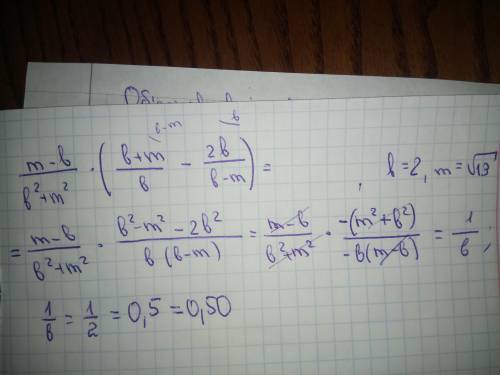 b-m b
m-b/(b²+m²) · ((b+m)/b - 2b/(b-m)) = , b=2, m=√13
= (m-b)/(b²+m²) · (b²-m²-2b²)/(b(b-m)) = (m-b)/(b²+m²) · (-(m²+b²))/(-b(m-b)) = 1/b ;
1/b = 1/2 = 0,5 = 0,50